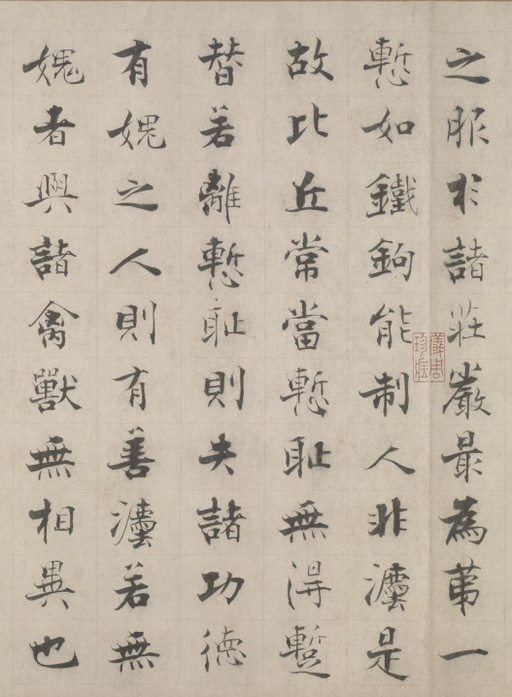 之服於諸莊嚴最為第一
慙如鐵鉤能制人非灋是
故比丘常當慙耻無得蹔
替若離慙耻則失諸功德
有媿之人則有善灋若無
媿者與諸禽獸無相異也
儀周珍藏